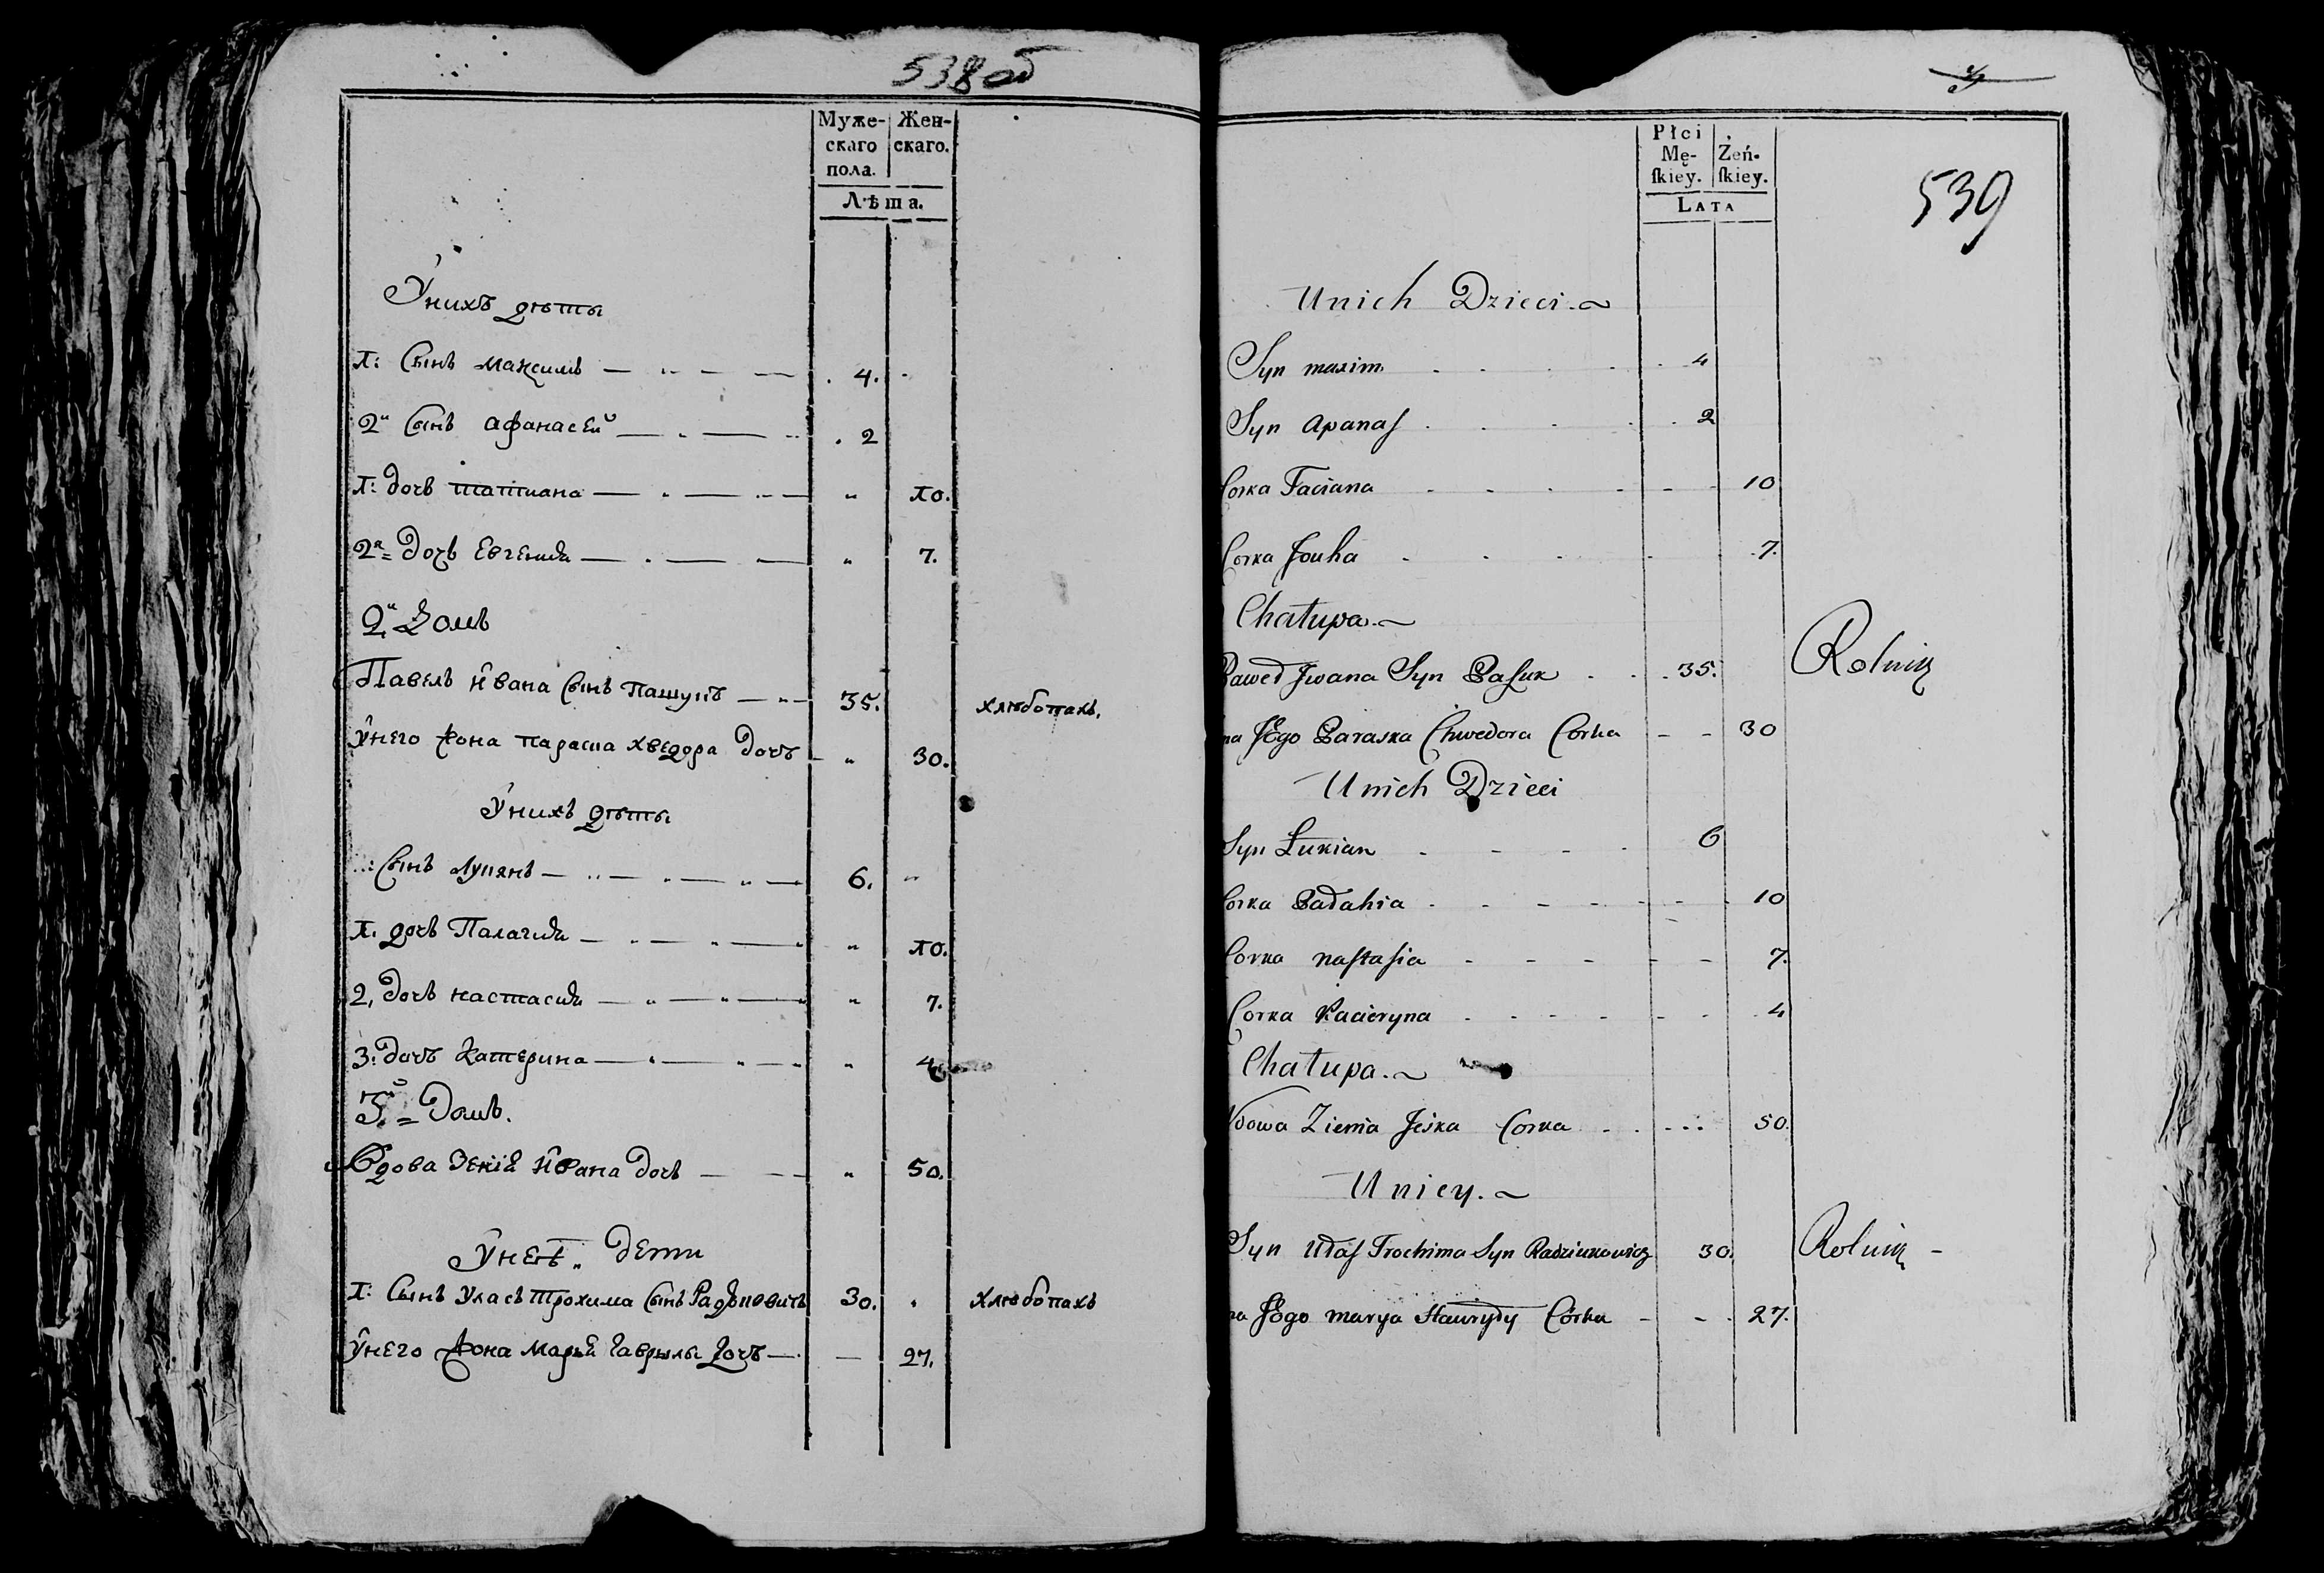 538 об
Муже- Жен-
скаго скаго.
пола.
Лѣта.
Унихъ дѣты
1: Сынъ Максимъ 4.
2й Сынъ Афанасей 2
1: дочь татиана 10.
2я дочь Евгения 7.
2й Домъ
Павелъ Ивана Сынъ Пашукъ 35. хлѣбопахъ.
Унего жона параска хведора дочъ 30.
Унихъ дѣты
Сынъ Лукянъ 6.
1. дочь Палагия 10.
2, дочь настасия 7.
3: дочъ Катерина 4
3й Домъ.
Вдова Ивана дочь 50.
Унеѣ дети
1: Сынъ Уласъ трохима Сынъ 30. хлѣбопахъ
Унего жона Маря Гаврылы дочъ 27.
539
Płci
Mę- Żeń-
ſkiey. ſkiey.
LATA
Unich Dzieci
Syn maxim 4
Syn Apanaſ 2
Corka Taciana 10
Corka Jouha 7.
Chałupa
Paweł Jwana Syn Paſuk 35. Rolnik
na Jego Paraska Chwedora Corka 30
Unich Dzieci
Syn Łukian 6
Corka Pałahia 10
Corka naſtaſia 7.
Corka Kacieryna 4
Chałupa
Wdowa Jeska Corka 50.
Uniey.
Syn Ułaſ Trochima Syn Radziukowicz 30. Rolnik
na Jego marya Hauryły Córka 27.